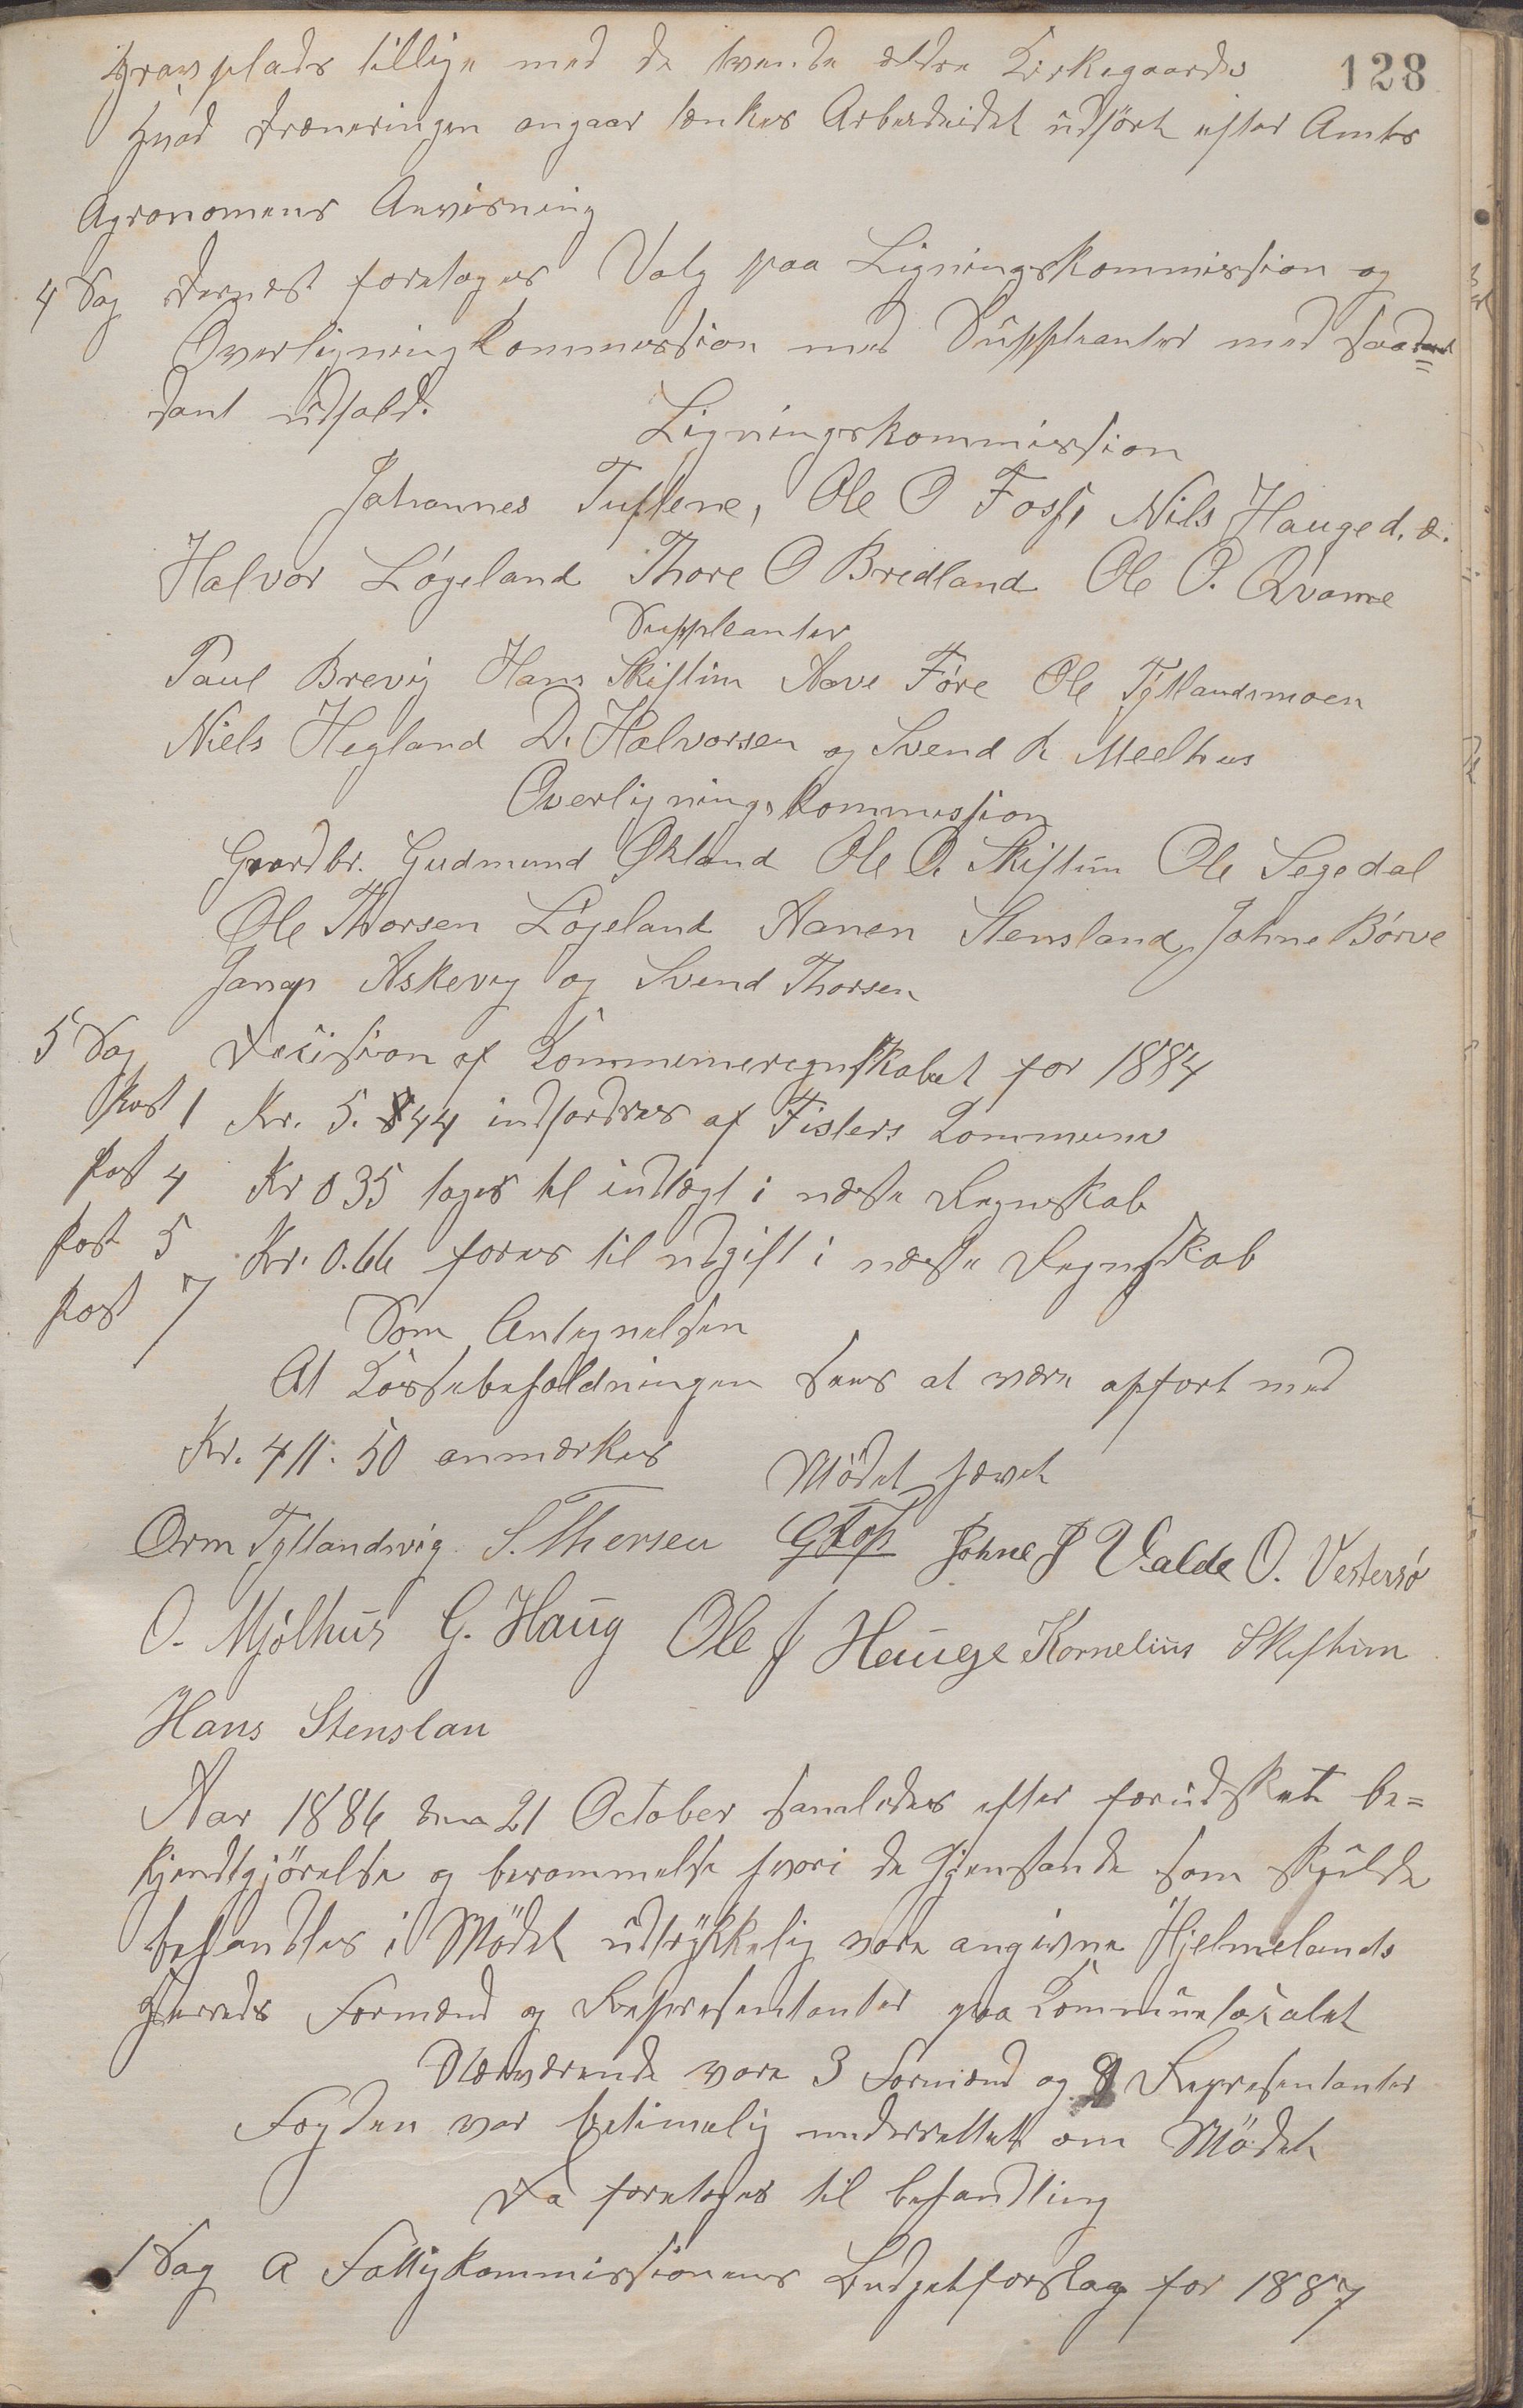 128
Gravplads tillige med de tvende ældre Kirkegaarde
Hvad Dræneringen angaar tænkes Arbeideidet udført efter Amts
Agronomens Anvisning
4 Sag Dernæst foretoges Valg paa Ligningskommission og
Overligningkommission med Suppleanter med saa=
dant udfald.
Ligningskommission
Johannes Tuftene, Ole O Foss, Nils Hauge d. æ.
Halvor Løgeland Thore O Bredland Ole O. Qvame
Suppleanter
Paul Brevig Hans Skiftun Aave Føre Ole Tytlandsmoen
Niels Hegland D. Halvorsen og Svend R Meelhus
Overligningskommission
Gaardbr. Gudmund Økland Ole O. Skiftun Ole Segedal
Ole Thorsen Løgeland Aanen Stensland, Johne Børve
Askevig og Svend Thorsen
5 Sag Decision af Kommuneregnskabet for 1884
Post 1 Kr. 5.844 indfordres af Fisters Kommune
Post 4 Kr 0 35 tages til indtægt i næste Regnskab
Post 5 Kr. 0.66 føres til udgift i næste Regnskab
Post 7 Som Antegnelsen
At Kassebeholdningen sees at være opført med
Kr. 411.50 anmærkes
Mødet hævet
Orm Tytlandsvig S. Thorsen G Foss Johne J Valde O. Vestersø
O. Mjølhus G. Haug Ole J Hauge Kornelius Skiftun
Hans Stenslan
Aar 1886 den 21 October samledes efter forudsket be=
kjendtgjørelse og berammelse hvori de Gjenstande som skulde
behandles i Mødet udtrykkelig vare angivne Hjelmelands
Herreds Formænd og Representanter paa Kommunelocalet
Nærværende vare 3 Formænd og 8 Representanter
Fogden var betimelig underrettet om Mødet
Da foretoges til behandling
1 Sag a Fattigkommissionens Budgetforslag for 1887